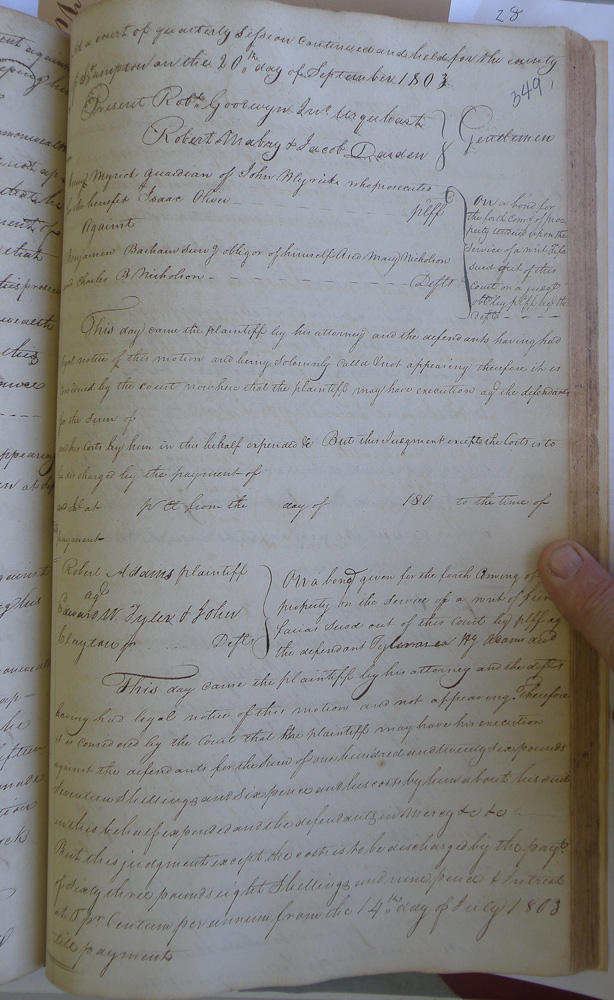 28
At a court of quarterly Session continued and held for the county
of Southampton on the 20th day of September 1803
349
Present Robt. Goodwyn Jno. Urquhart
Robert Mabry & Jacob Darden } Gentlemen
Myrick guardian of John Myrick who prosecutes
for the benefit of Isaac Oliver plff
Against
Benjamin Barham surv'g obligor of himself and Mary Nicholson
and Charles B Nicholson Defts
On a bond for
the forth Comg. of pro-
perty upon the
service of a writ Fifa
sued out of this
court on a judgt
obt. by plff agt the
Defts
This day came the plaintiff by his attorney and the defendants having had
legal notice of this motion and being Solemnly called & not appearing therefore it is
Considered by the court now here that the plaintiff may have execution agt the defendants
for the sum of
and his costs by him in this behalf expended &c But this Judgment except the Costs is to
be discharged by the payment of
at p Ct from the day of 180 to the time of
payment
Robert Adams plaintiff
agt
Edward W. Tyler & John
Clayton jr Defts
On a bond given for the forth Coming of
property on the service of a writ of fieri
facias sued out of this Court by plff agt
the defendant Tyler
This day came the plaintiff by his attorney and the defts
having had legal notice of this motion and not appearing. Therefore
it is considered by the Court that the plaintiff may have his execution
against the defendants for the Sum of one hundred and twenty six pounds
Seventeen Shillings and Sixpence and his costs by him about his suit
in this behalf expended and the defendants in Mercy &c &c
But this judgment except the costs is to be discharged by the paymt.
of Sixty three pounds eight Shillings and nine pence & Interest
at 5 pr Centum per annum from the 14th day of July 1803
till payment